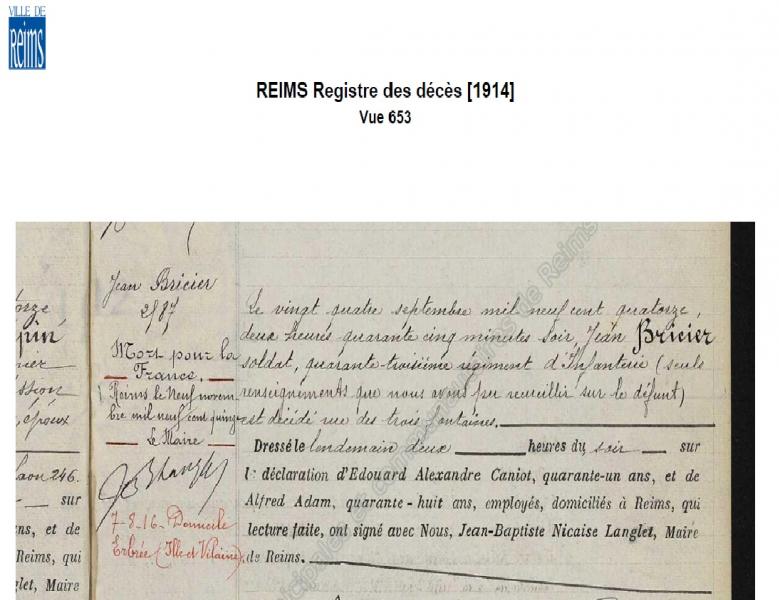 VILLE DE
Reims
REIMS Registre des décès [1914]
Vue 653
Jean Bricier
2587
Mort pour la
France.
Reims le Neuf novem-
bre mil neuf cent quinze
Le Maire
7-8-16 - Domicile
Erbrée (Ille et Vilaine)
Le vingt quatre septembre mil neuf cent quatorze,
deux heures quarante cinq minutes soir, Jean Bricier
soldat, quarante-troisième régiment d'Infanterie (seuls
renseignements que nous avons pu recueillir sur le défunt)
est décédé rue des trois fontaines.
Dressé le lendemain deux heures du soir sur
la déclaration d'Edouard Alexandre Caniot, quarante-un ans, et de
Alfred Adam, quarante-huit ans, employés, domiciliés à Reims, qui
lecture faite, ont signé avec Nous, Jean-Baptiste Nicaise Langlet, Maire
de Reims.
époux
Laon 246.
sur
ns, et de
Reims, qui
glet, Maire